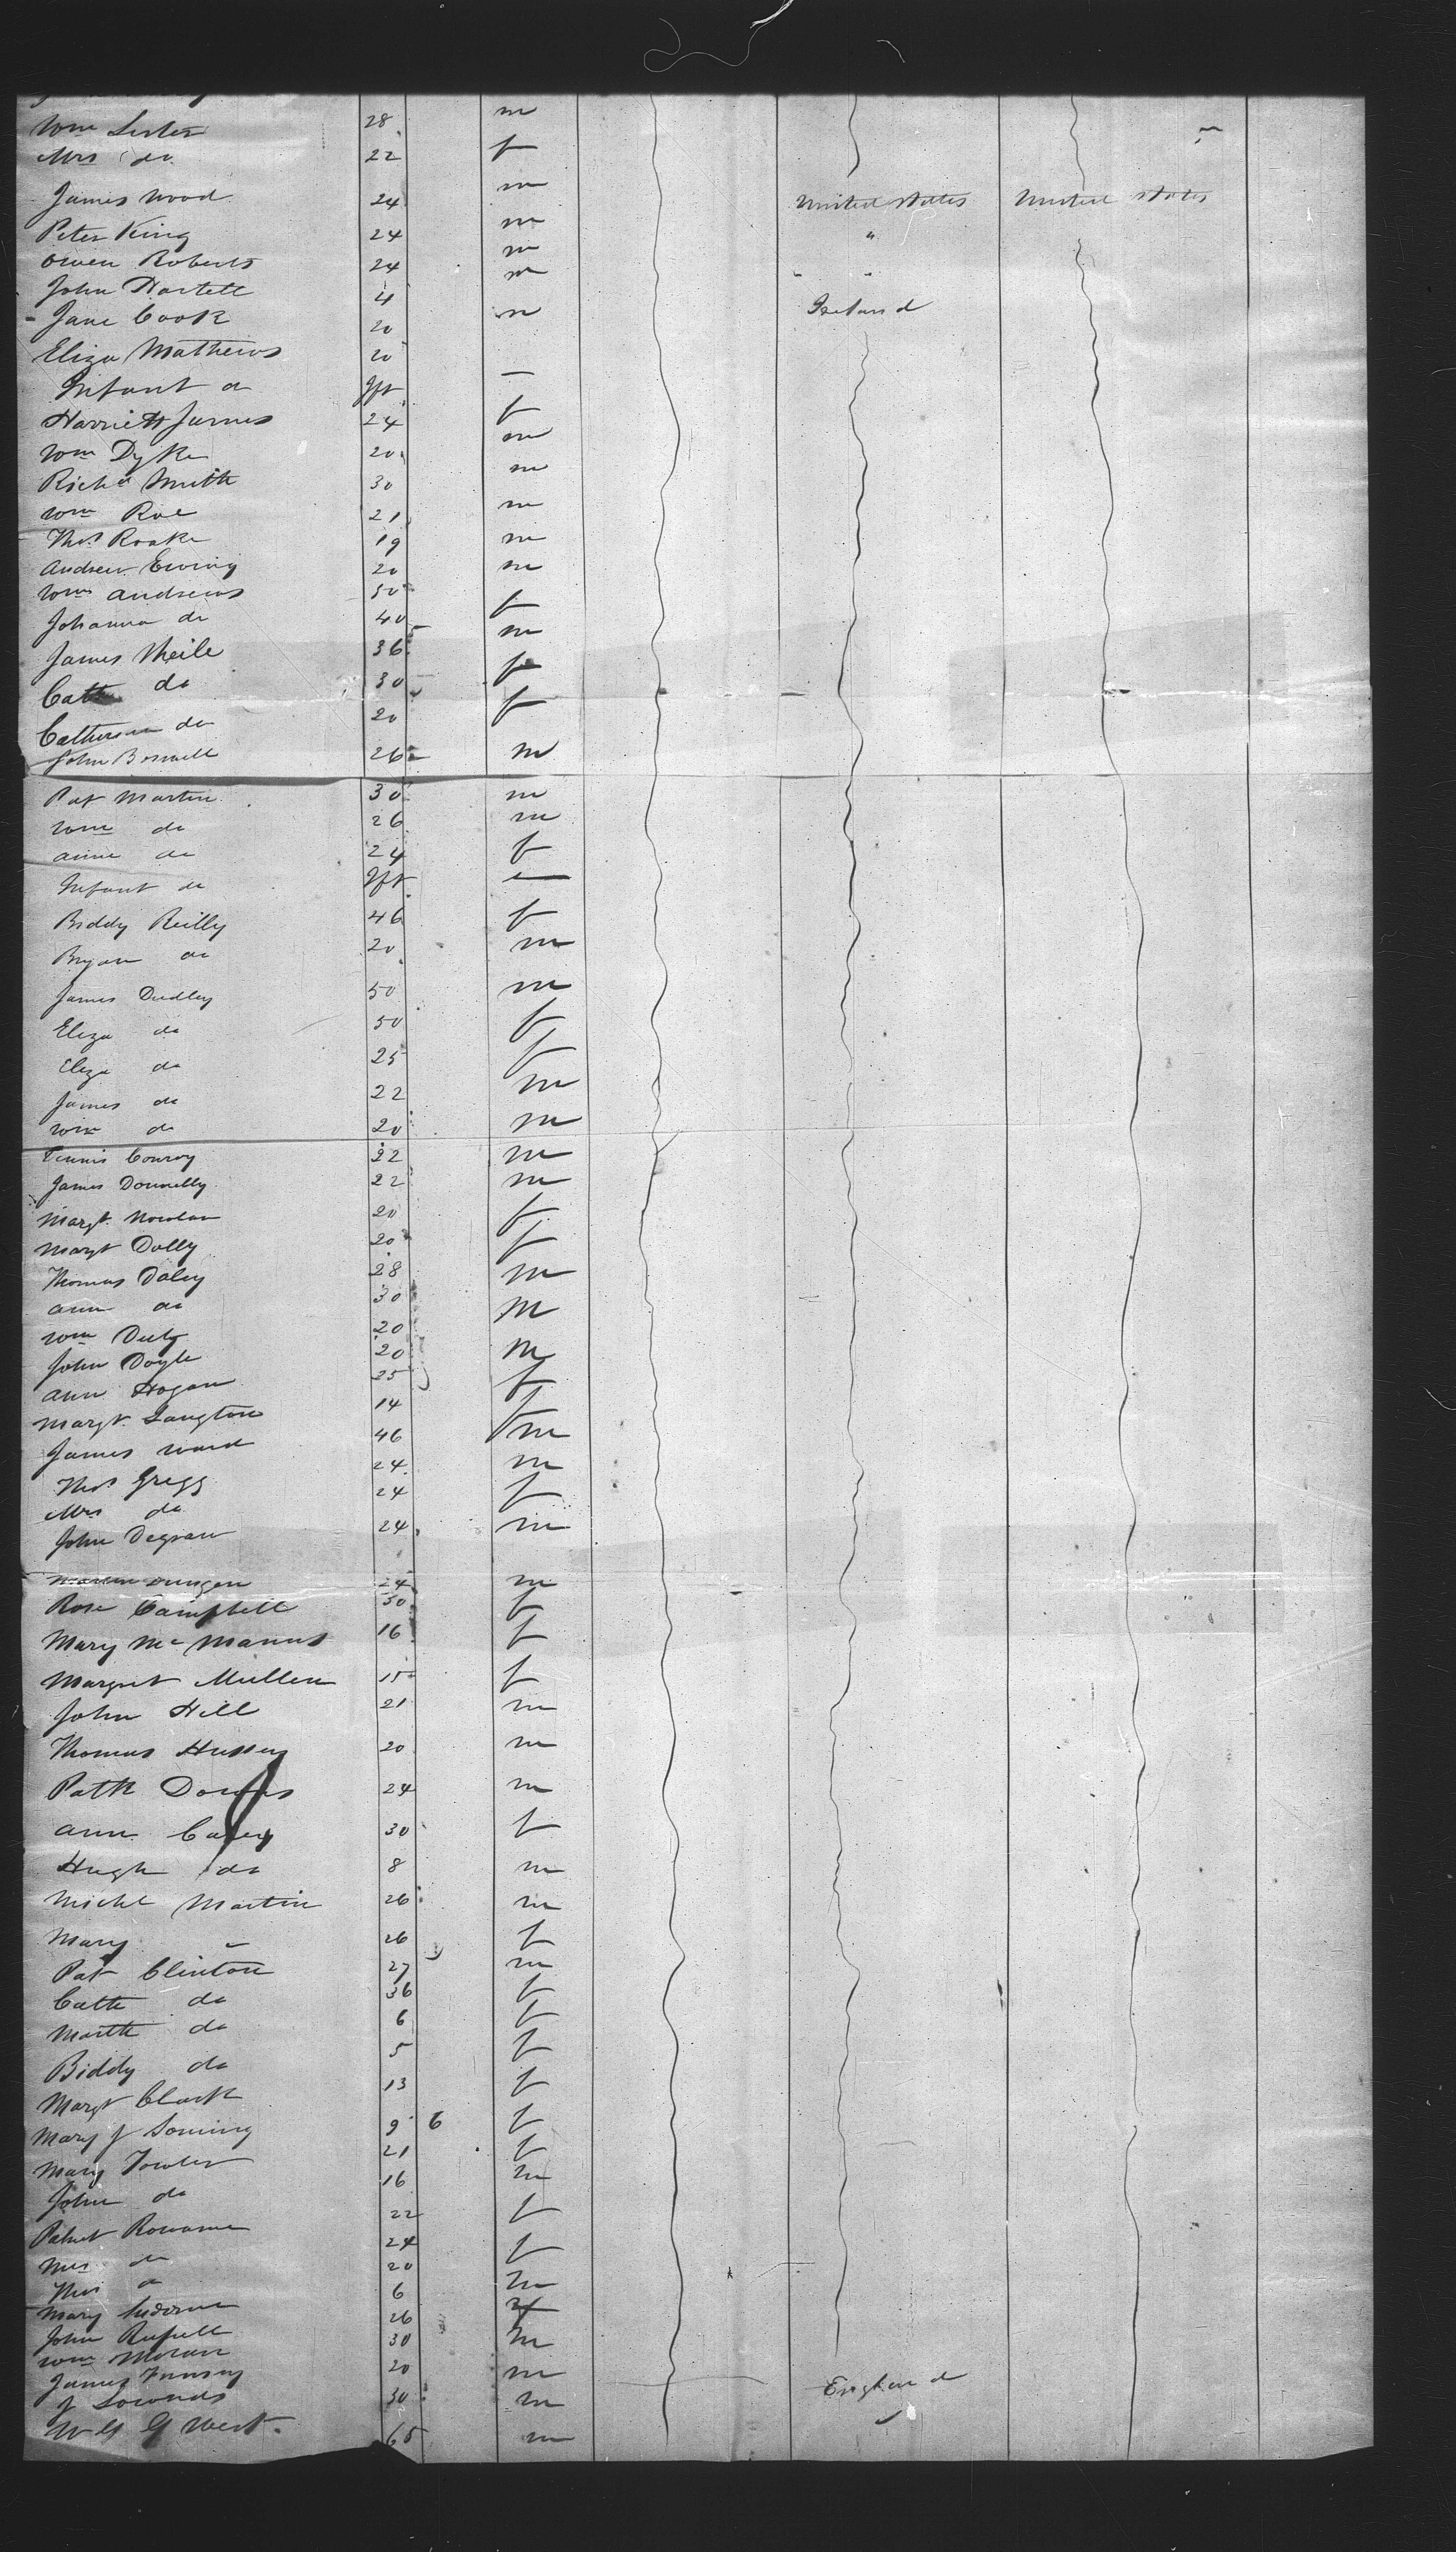 Wm Lister 28 m
Mrs do 22 f
James Wood 24 m United States United States
Peter King 24 m "
Owen Roberts 24 m " "
John Hartell 4 m
Jane Cook 20 m Ireland
Eliza Mathews 20
Infant do Jft —
Harriett James 24 f
Wm Dyke 20 m
Richd Smith 30 m
Wm Roe 21 m
Thos Roake 19 m
Andrew Ewing 20 m
Wm Andrews 50
Johanna do 40 f
James Sheile 36 m
Cath do 30 f
Catherine do 20 f
John Bonnell 26 m
Pat Martin 30 m
Wm do 26 m
Anne do 24 f
Infant do Jft —
Biddy Reilly 46 f
Bryan do 20 m
James Dudley 50 m
Eliza do 50 f
Eliza do 25 f
James do 22 m
Wm do 20 m
Dennis Conroy 22 m
James Donnelly 22 m
Margt Nowlan 20 f
Margt Dolly 20 f
Thomas Daley 28 m
Ann do 30 m
Wm Duty 20
John Doyle 20 m
Ann Hogan 25 f
Margt Langton 14 f
James Ward 46 m
Thos Gregg 24 m
Mrs do 24 f
John Degraw 24 m
Dungen 24 m
Rose Campbell 30 f
Mary McManus 16 f
Margret Mullen 15 f
John Hill 21 m
Thomas Hussey 20 m
Patk Downs 24 m
Ann Casey 30 f
Hugh do 8 m
Michl Martin 26 m
Mary " 26 f
Pat Clinton 27 m
Cath do 36 f
Marth do 6 f
Biddy do 5 f
Margt Clark 13 f
Mary J 9 6 f
Mary Fowler 21 f
John do 16 m
Rowanne 22 f
Mrs do 24 f
do 20
Mary 6 m
John Russell 26 f
Wm Moran 30 m
James 20 m
J Lownds 30 m England
W G G West. 65 m